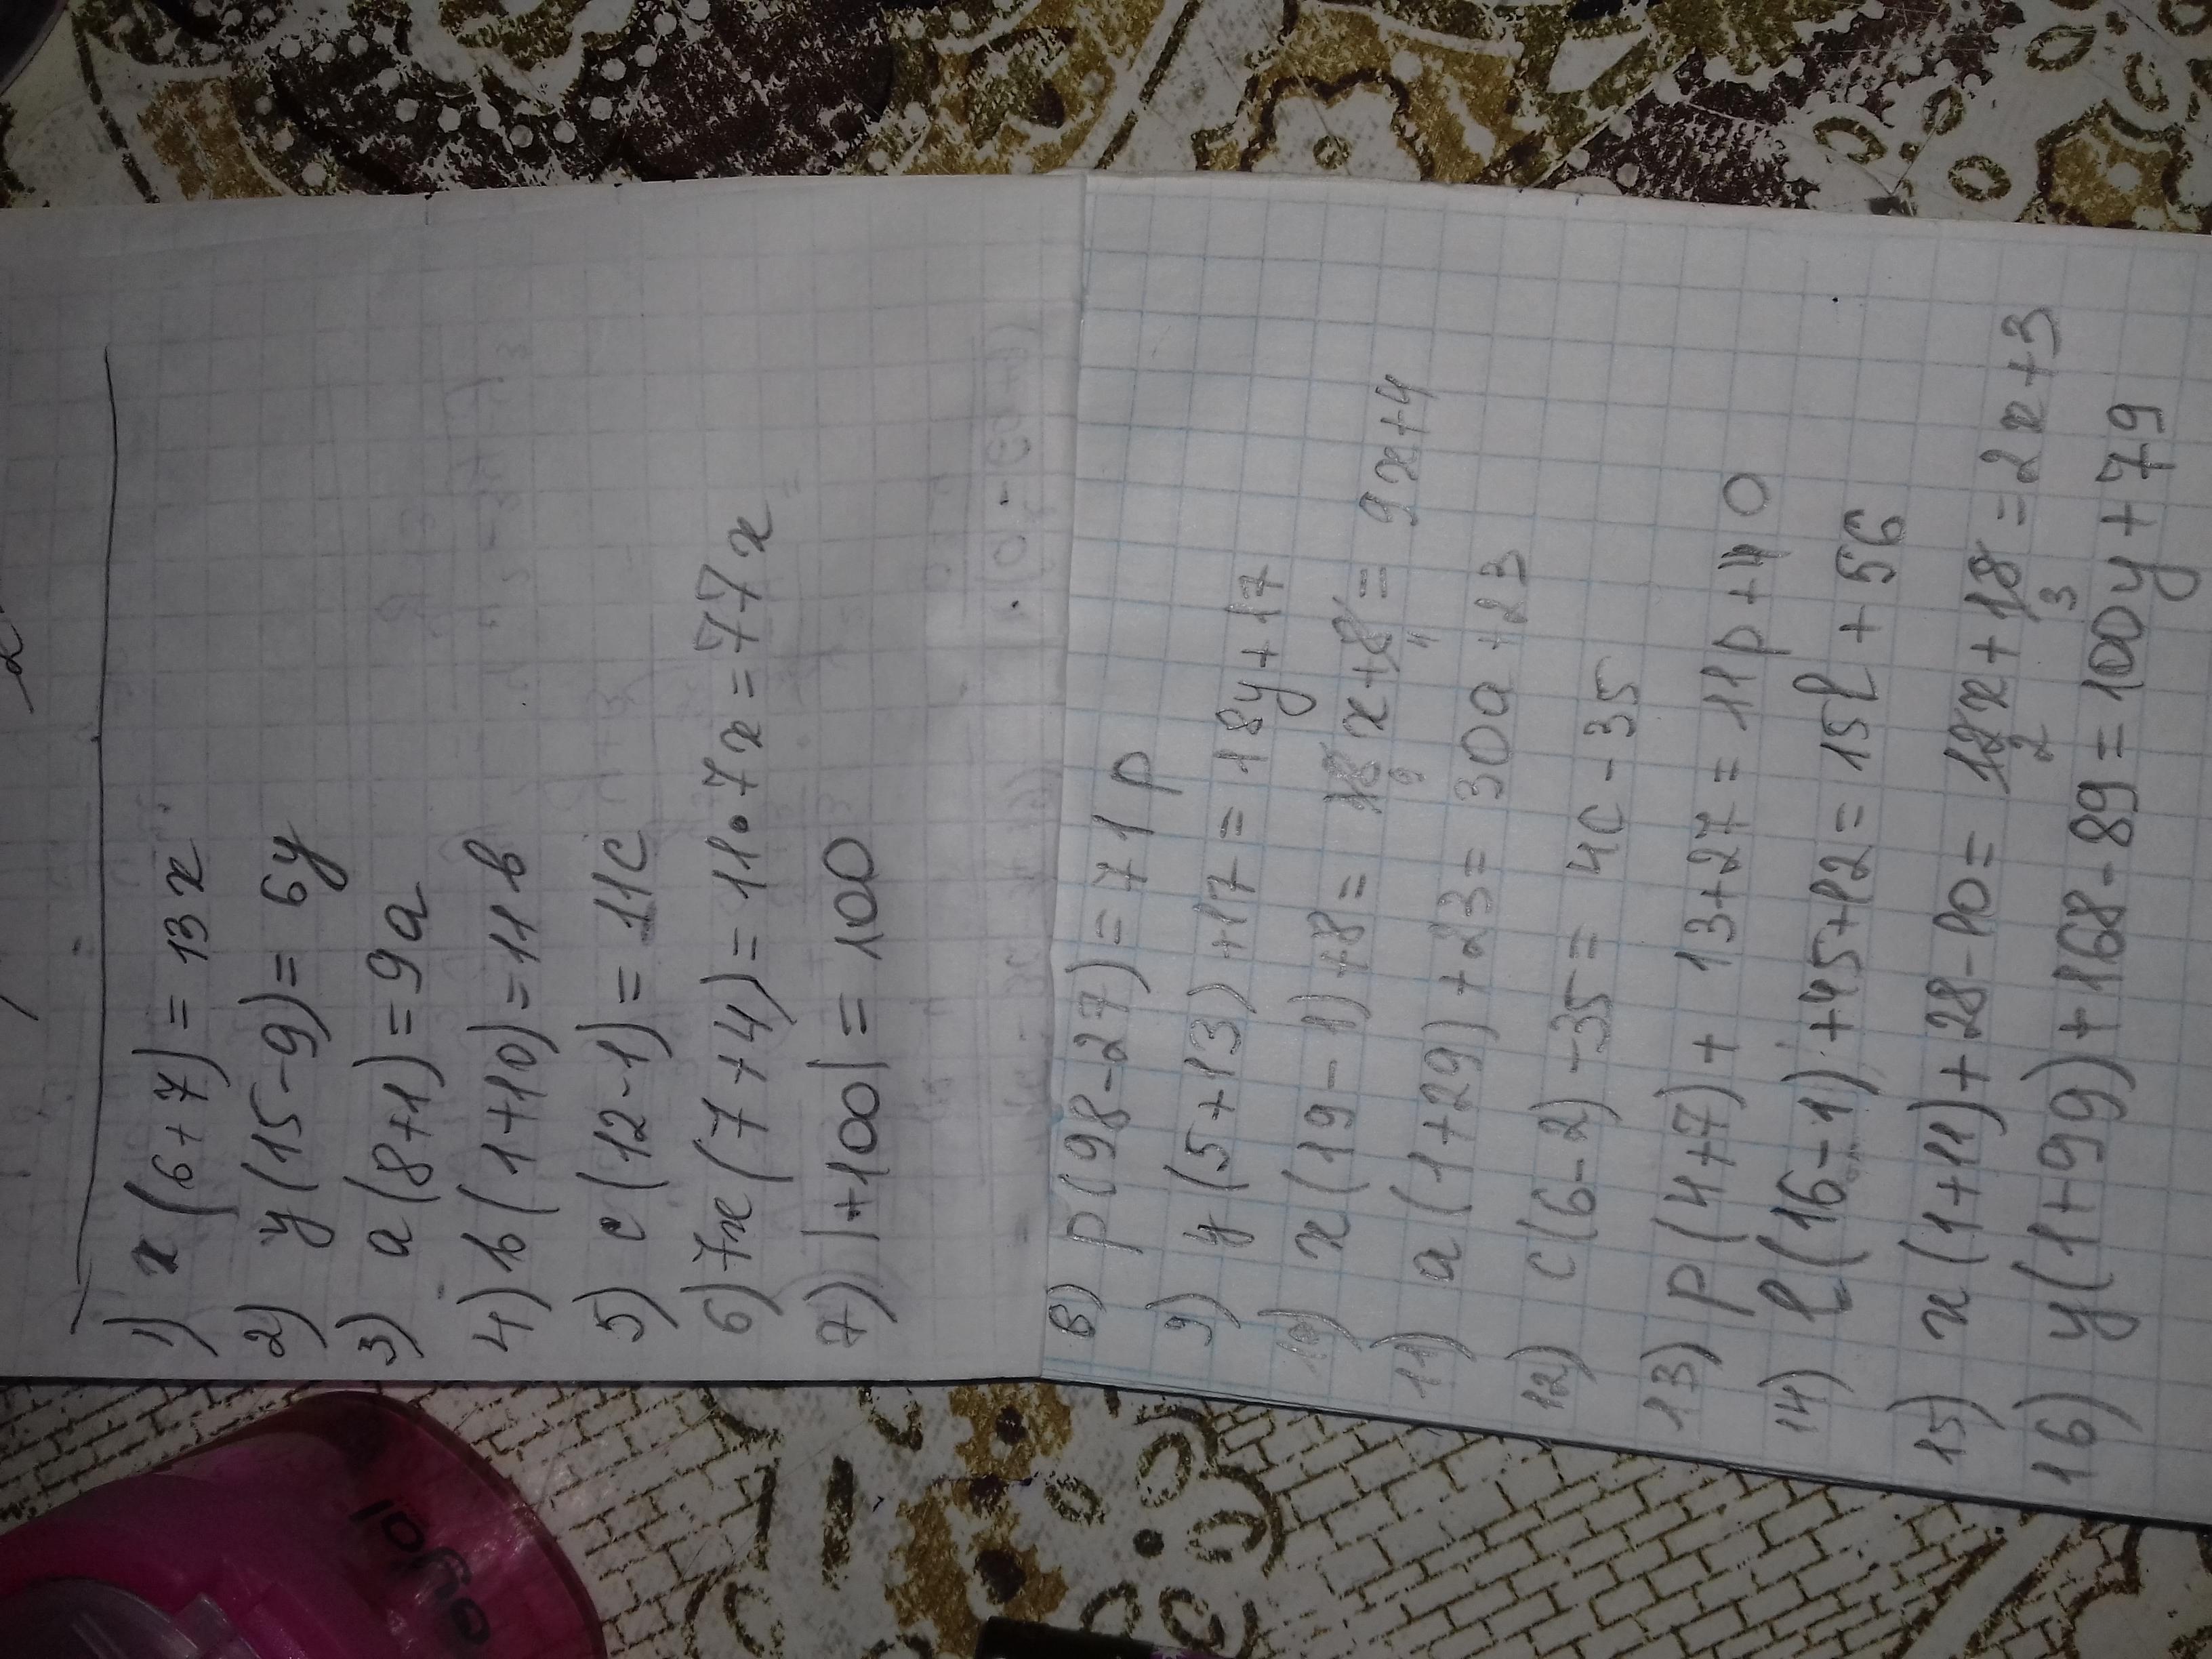 1) x (6+7) = 13x
2) y (15-9) = 6y
3) a (8+1) = 9a
4) b (1+10) = 11b
5) c (12-1) = 11c
6) 7x (7+4) = 11·7x = 77x
7) |+100| = 100
8) p (98-27) = 71p
9) y (5+13) +17 = 18y+17
10) x (19-1) +8 = 18x+8 = 9x+4
9 4
11) a (1+29) +23 = 30a+23
12) c (6-2) -35 = 4c-35
13) p (4+7) + 13+27 = 11p+40
14) l (16-1) +45+12 = 15l+56
15) x (1+11) +28-10 = 12x+18 = 2x+3
2 3
16) y (1+99) +168-89 = 100y+79
oyal